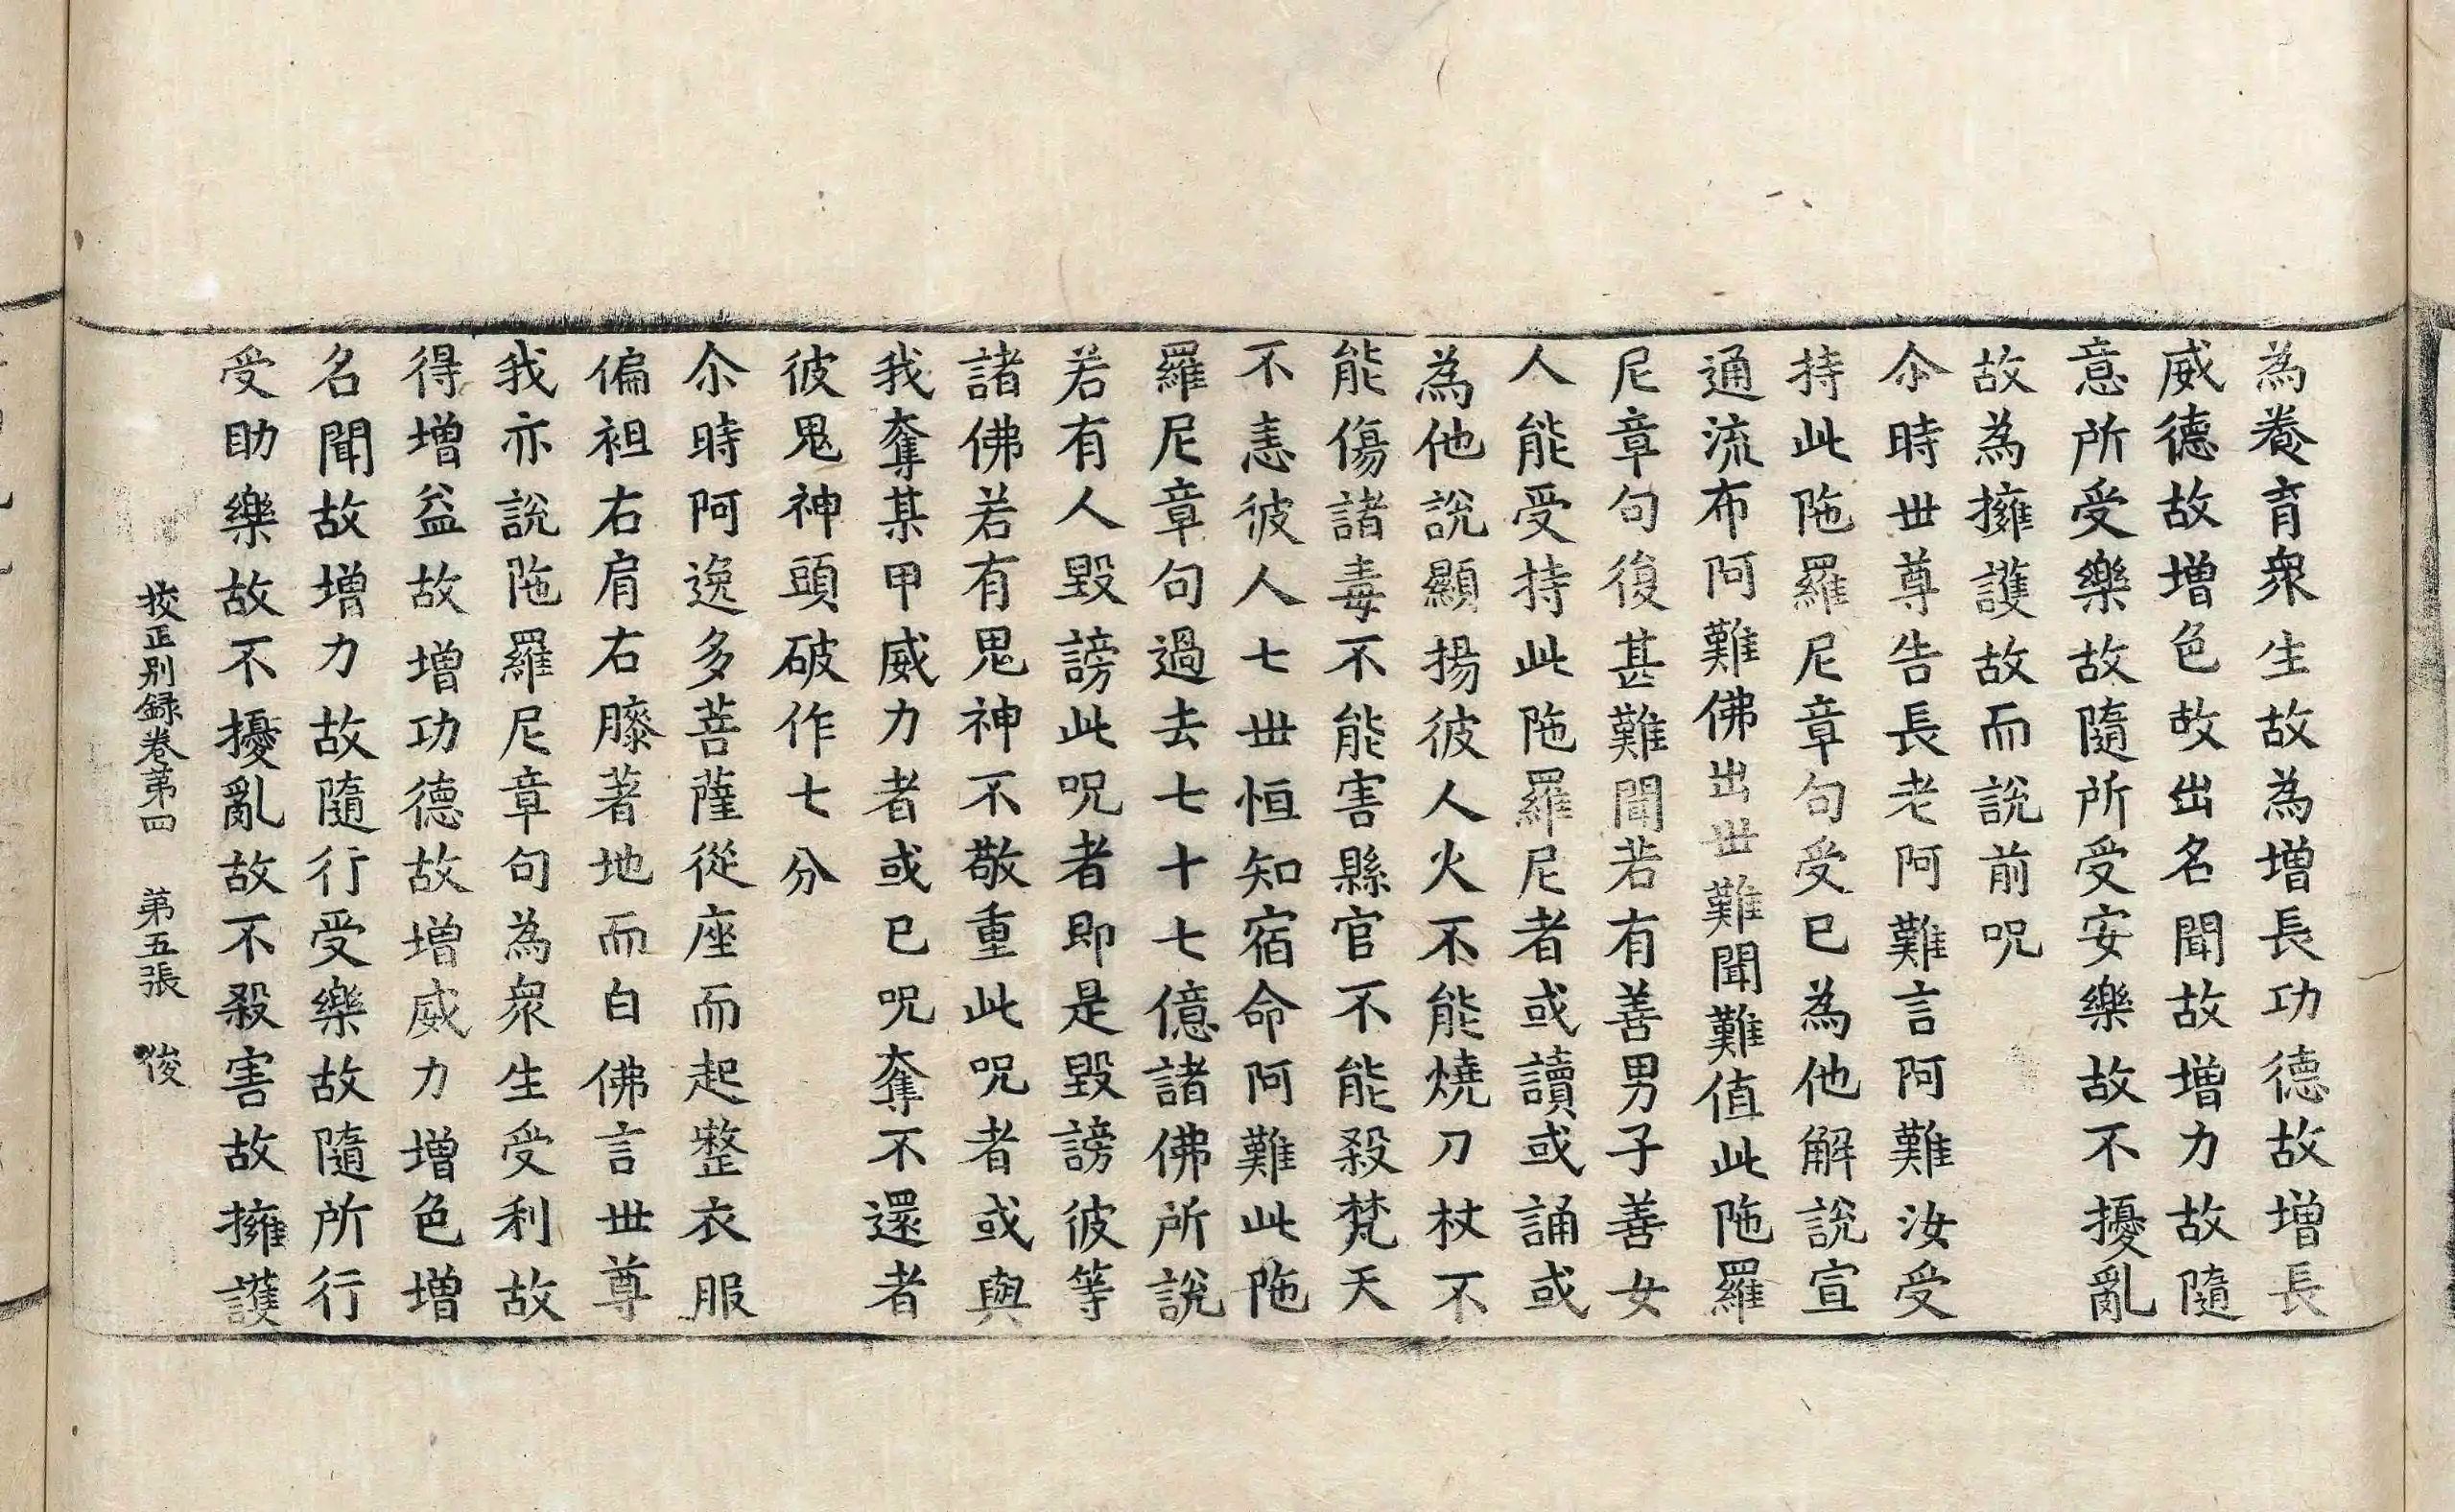 為養育衆生故為增長功德故增長
威德故增色故出名聞故增力故隨
意所受樂故隨所受安樂故不擾亂
故為擁護故而說前呪
尒時世尊告長老阿難言阿難汝受
持此陁羅尼章句受已為他解說宣
通流布阿難佛出世難聞難值此陁羅
尼章句復甚難聞若有善男子善女
人能受持此陁羅尼者或讀或誦或
為他說顯揚彼人火不能燒刀杖不
能傷諸毒不能害縣官不能殺梵天
不恚彼人七世恒知宿命阿難此陁
羅尼章句過去七十七億諸佛所說
若有人毀謗此呪者即是毀謗彼等
諸佛若有鬼神不敬重此呪者或與
我奪某甲威力者或已呪奪不還者
彼鬼神頭破作七分
尒時阿逸多菩薩從座而起整衣服
偏袒右肩右膝著地而白佛言世尊
我亦說陁羅尼章句為衆生受利故
得增益故增功德故增威力增色增
名聞故增力故隨行受樂故隨所行
受助樂故不擾亂故不殺害故擁護
挍正別録卷第四 第五張 俊